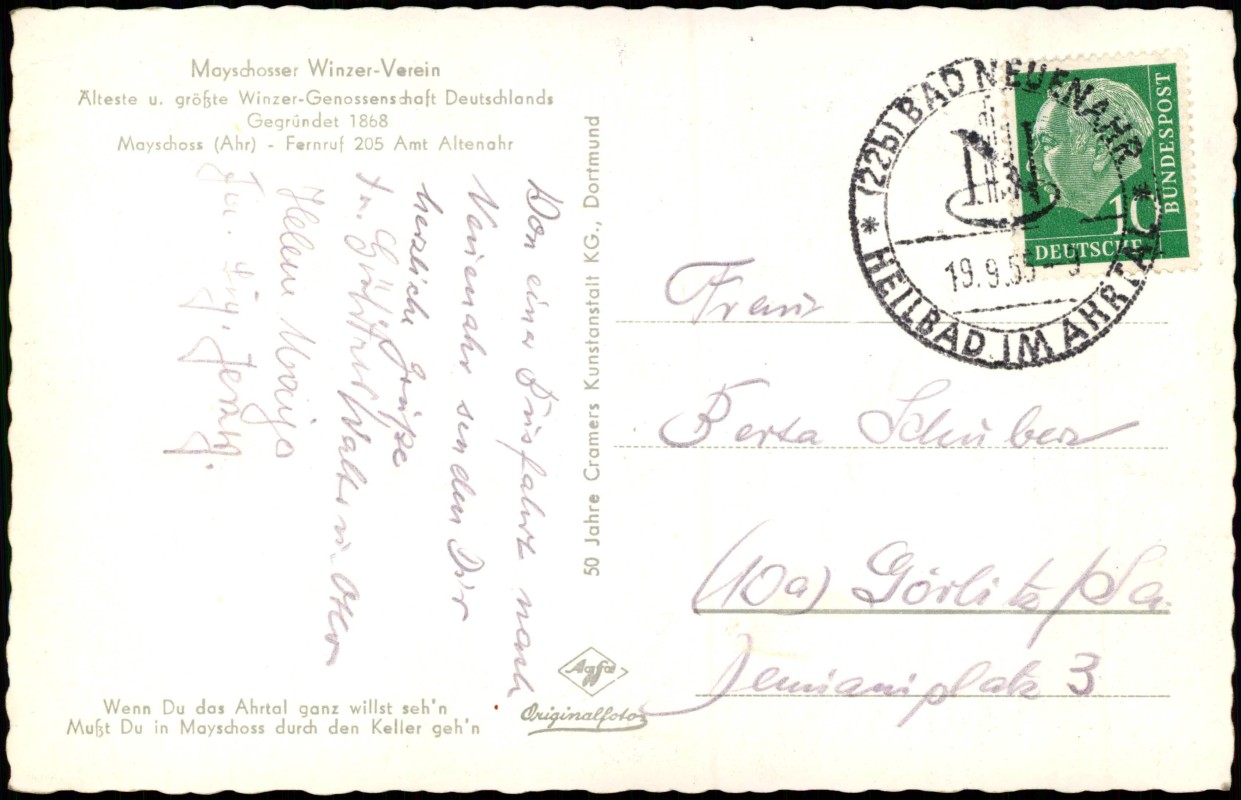 Mayschosser Winzer-Verein
Älteste u. größte Winzer-Genossenschaft Deutschlands
Gegründet 1868
Mayschoss (Ahr) - Fernruf 205 Amt Altenahr
Von einer Busfahrt nach
Neuenahr senden Dir
herzliche Grüße
Helene
Wenn Du das Ahrtal ganz willst seh'n
Mußt Du in Mayschoss durch den Keller geh'n
50 Jahre Cramers Kunstanstalt KG., Dortmund
Agfa
Originalfoto
(22b) BAD NEUENAHR
19.9.55-9
* HEILBAD IM AHRTAL *
DEUTSCHE
BUNDESPOST
10
Frau
Berta Schuber
(10a) Görlitz/Sa.
Demianiplatz 3